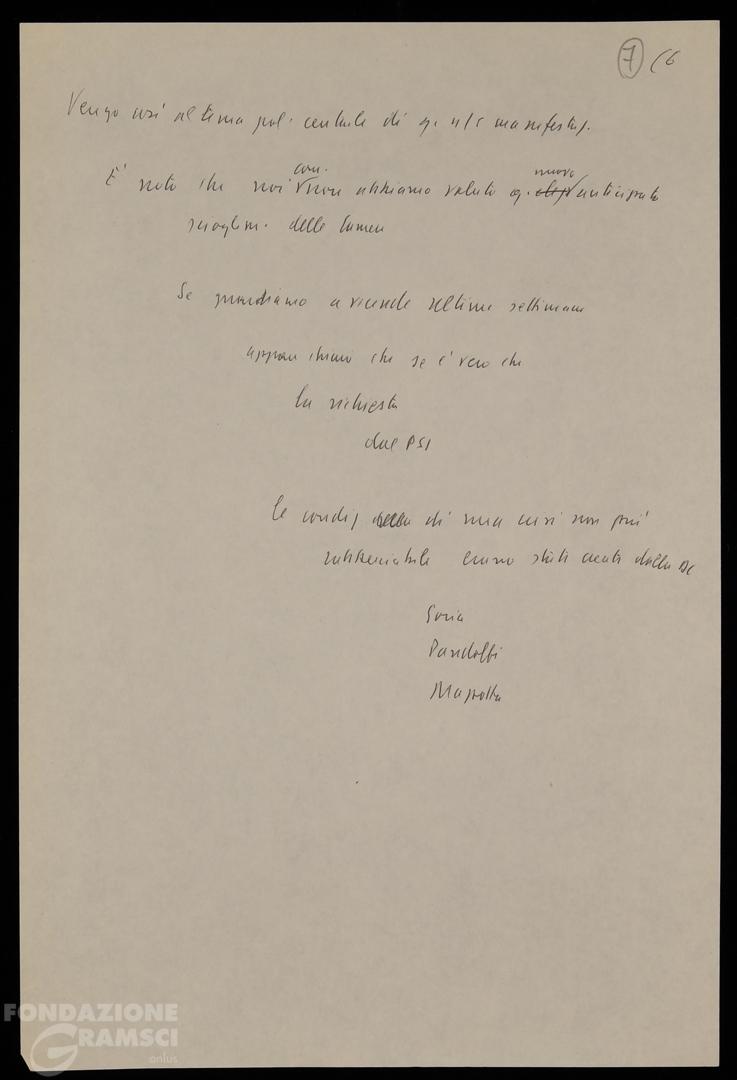 7 (6
Vengo così al tema pol. centrale di q. ns manifestaz.
com.
È noto che noi non abbiamo voluto q. nuovo anticipato
scioglim. delle Camere
Se guardiamo a vicende ultime settimane
appare chiaro che se è vero che
la richiesta
dal PSI
le condiz di una crisi non più
rattenibile erano state create dalla DC
Goria
Pandolfi
FONDAZIONE
GRAMSCI
onlus